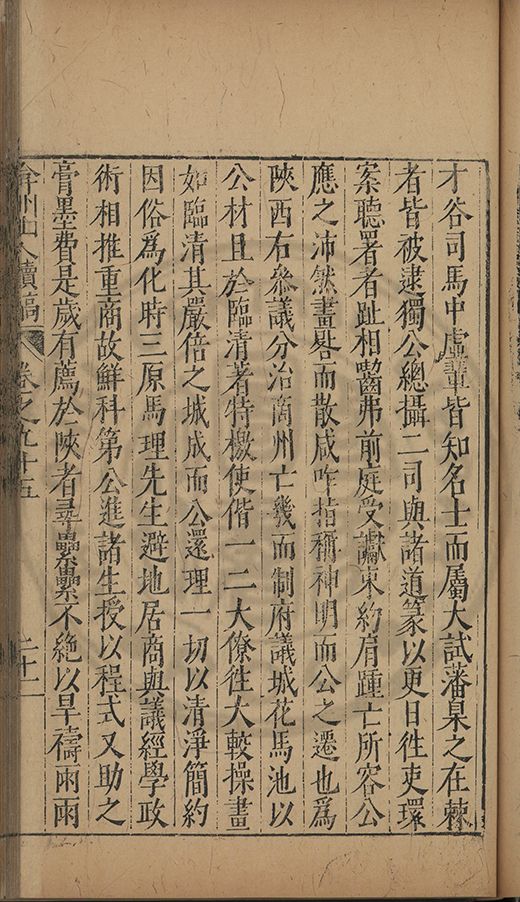 才谷司馬中虛輩皆知名士而屬大試藩臬之在棘
者皆被逮獨公總攝二司與諸道篆以更日徃吏環
案聽署者趾相齧弗前庭受讞東約肩踵亡所容公
應之沛然晝晷而散咸咋指稱神明而公之遷也爲
陝西右叅議分治商州亡幾而制府議城花馬池以
公材且於臨清著特檄使偕一二大僚徃大較操畫
如臨清其嚴倍之城成而公還理一切以清淨簡約
因俗爲化時三原馬理先生避地居商與議經學政
術相推重商故鮮科第公進諸生授以程式又助之
膏墨費是歲有薦於陝者尋纍纍不絶以旱禱雨雨
弇州山人續稿 卷之九十五 二十二